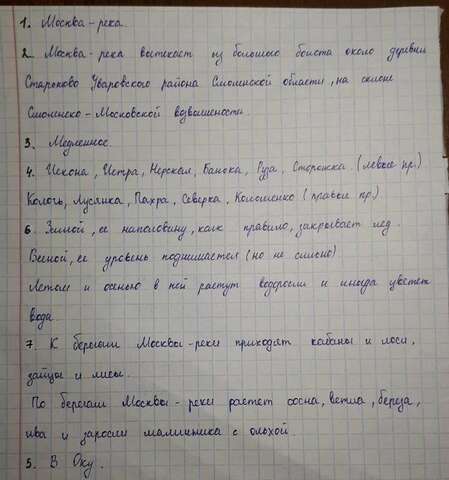 1. Москва-река.
2. Москва-река вытекает из большого болота около деревни
Старьково Уваровского района Смоленской области, на склоне
Смоленско-Московской возвышенности.
3. Медленное.
4. Искона, Истра, Нерская, Банька, Руза, Сторожка. (левые пр.)
Колочь, Лусянка, Пахра, Северка, Коломенка (правые пр.)
6. Зимой, ее наполовину, как правило, закрывает лед.
Весной, ее уровень поднимается (но не сильно).
Летом и осенью в ней растут водоросли и иногда цветет
вода.
7. К берегам Москвы-реки приходят кабаны и лоси,
зайцы и лисы.
По берегам Москвы-реки растет сосна, ветла, береза,
ива и заросли малинника с ольхой.
5. В Оку.